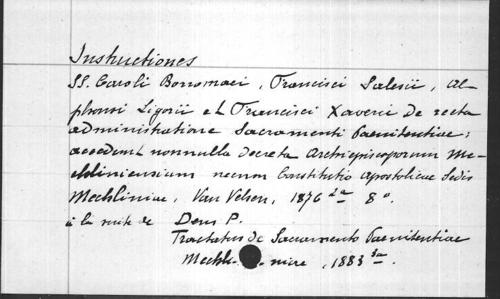 Instructiones
SS. Caroli Borromaei, Francisci Salesii, Al-
phonsi Ligorii et Francisci Xaverii de recta
administratione Sacramenti Paenitentiae;
accedunt nonnulla decreta Archiepiscoporum Me-
chliniensium necnon Constitutio Apostolicae Sedis
Mechliniae, Van Velsen, 1876 2a 8o.
à la suite de Dens P.
Tractatus de Sacramento Paenitentiae
Mechli niae, 1883 3a.